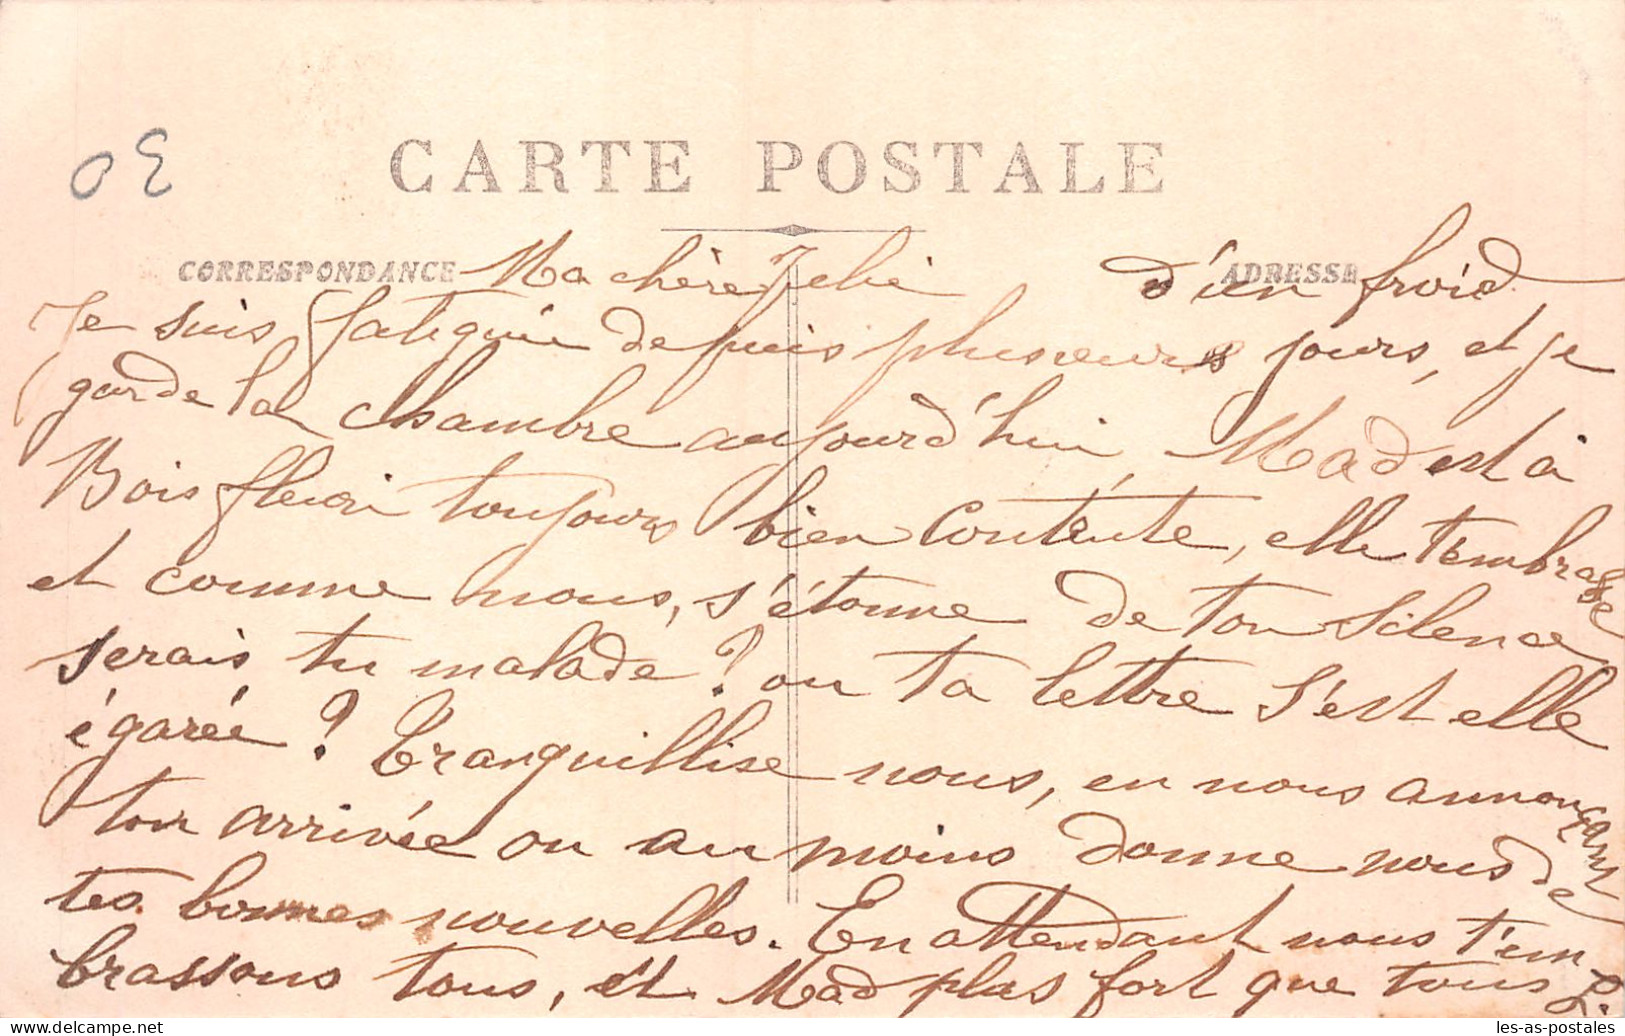 OE
CARTE POSTALE
CORRESPONDANCE
ADRESSE
Ma chère
d'ien froid
Je suis fatiguée depuis plusieurs jours, et je
garde la chambre aujourd'hui, Mad est à
Bois fleuri toujours bien contente, elle t'embrasse
et comme nous, s'étonne de ton silence
serais tu malade ? ou ta lettre s'est elle
égarée ? Tranquillise nous, en nous annonçant
ton arrivée ou au moins donne nous de
tes bonnes nouvelles. En attendant nous t'em
brassons tous, et Mad plus fort que tous
L.
les-as-postales